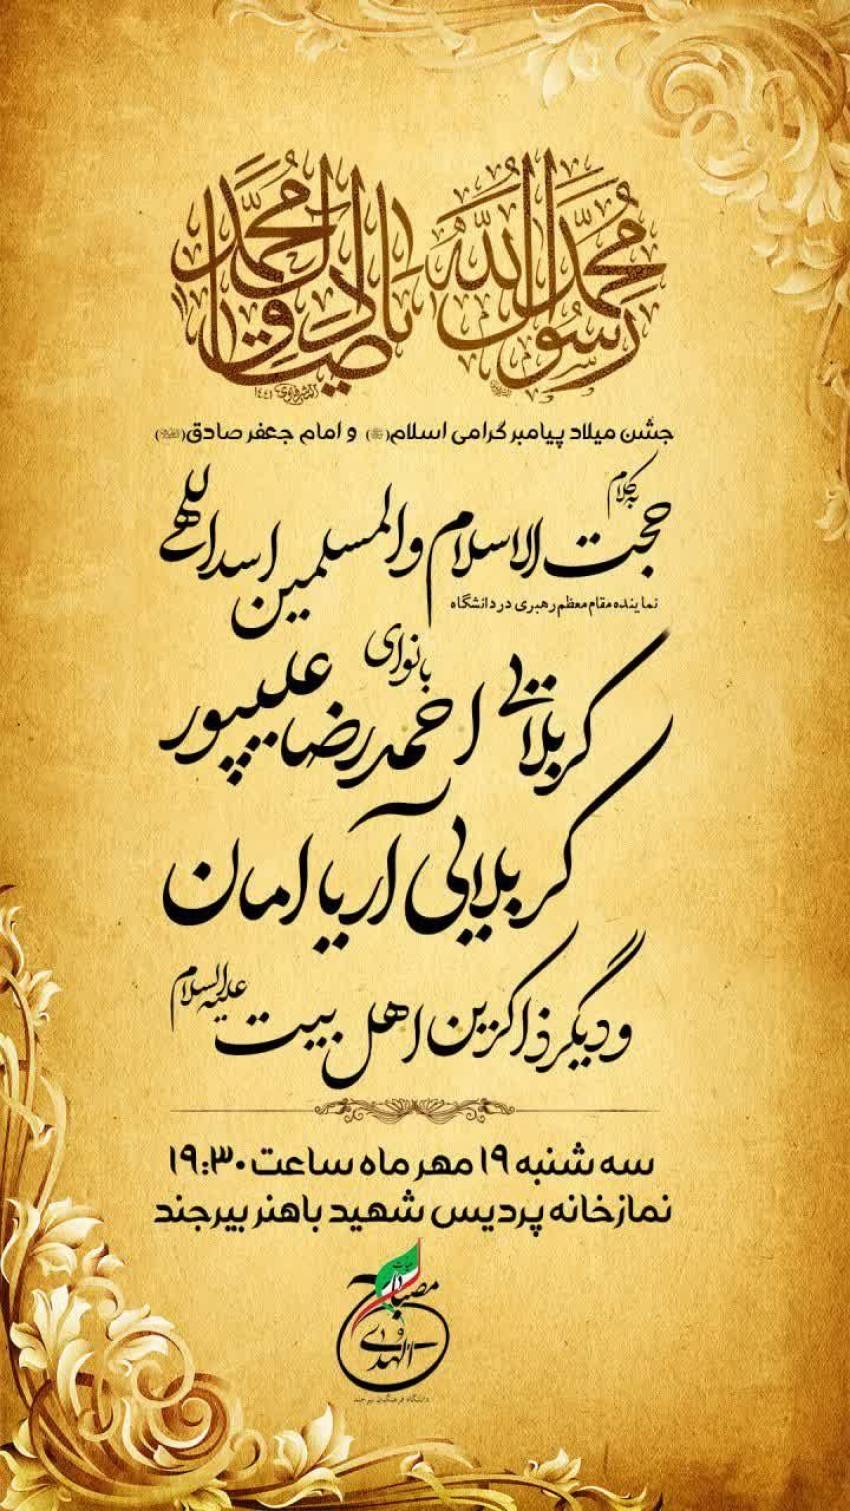 محمد رسول الله
یا صادق آل محمد
جشن میلاد پیامبر گرامی اسلام(ﷺ) و امام جعفر صادق
به کلام
حجت الاسلام والمسلمین اسداللهی
نماینده مقام معظم رهبری در دانشگاه
با نوای
کربلائی احمدرضا علیپور
کربلایی آریا امان
و دیگر ذاکرین اهل بیت علیه السلام
سه شنبه ۱۹ مهر ماه ساعت ۱۹:۳۰
نمازخانه پردیس شهید باهنر بیرجند
هیات
مصباح الهدی
دانشگاه فرهنگیان بیرجند